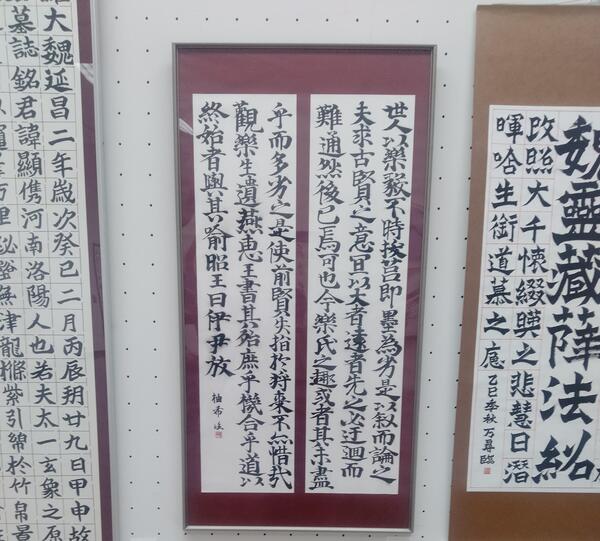 魏靈藏薛法紹
攺照大千懷綴暎之悲慧日潛
暉唅生銜道慕之應
乙巳季秋 万尋臨
世人以樂毅不時拔莒即墨為劣是以叙而論之
夫求古賢之意宜以大者遠者先之必迂迴而
難通然後已焉可也今樂氏之趣或者其未盡
乎而多劣之是使前賢失指於將來不亦惜哉
觀樂生遺燕惠王書其殆庶乎機合乎道以
終始者與其喻昭王曰伊尹放
柚希
大魏延昌二年歲次癸巳二月丙辰朔廿九日甲申故
墓誌銘君諱顯儁河南洛陽人也若夫太一玄象之原
無津龍紫引綿於竹帛景